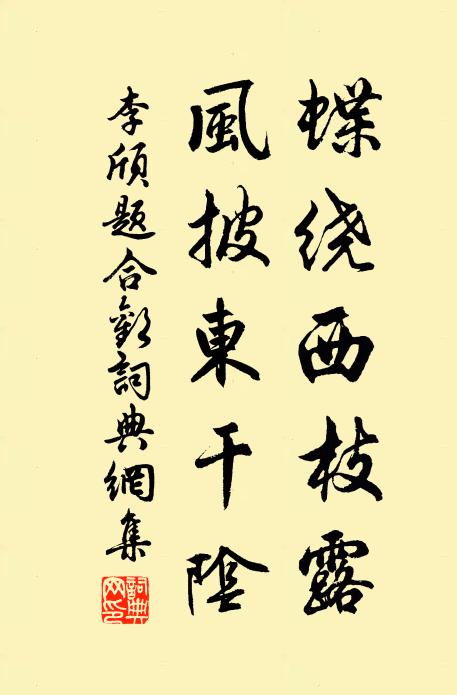 蝶绕西枝露
風披東干陰
李頎題合歡詞典網集
詞典網印